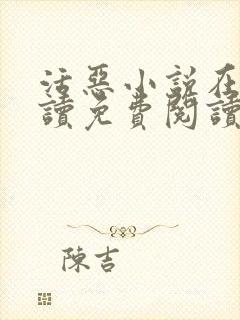 活惡小說在
讀免費閱讀
陳吉